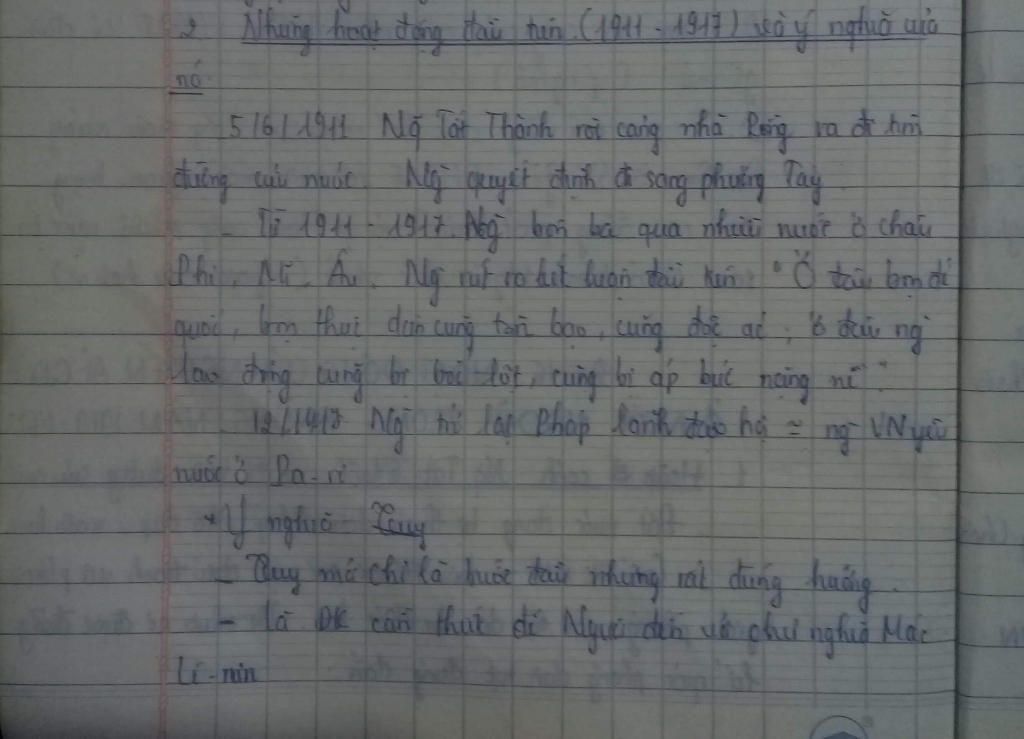 2 Những hoạt động đầu tiên (1911 - 1917) và ý nghĩa của
nó
5/6/1911 Ng Tất Thành rời cảng nhà Rồng ra đi tìm
đường cứu nước. Ng quyết định đi sang phương Tây
- Từ 1911 - 1917. Ng bôn ba qua nhiều nước ở châu
Phi, Mĩ, Âu. Ng rút ra kết luận đầu tiên: "Ở đâu bọn đế
quốc, bọn thực dân cũng tàn bạo, cũng độc ác, ở đâu ng
lao động cũng bị bóc lột, cũng bị áp bức nặng nề".
- 12/1917 Ng trở lại Pháp lãnh đạo hộ = ng VN yêu
nước ở Pa-ri
* Ý nghĩa
- Quy mô chỉ là bước đầu nhưng rất đúng hướng.
- là ĐK cần thiết để Người đến với chủ nghĩa Mác
Lê-nin